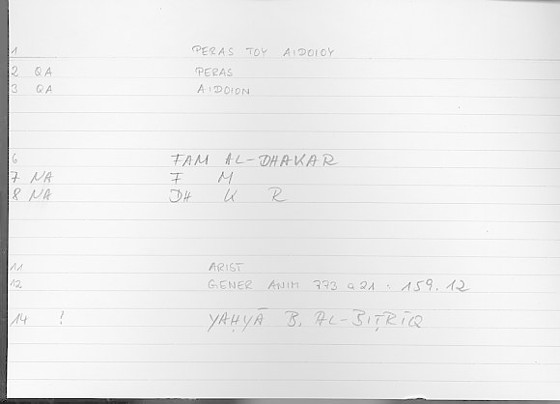 1 PERAS TOY AIDOIOY
2 QA PERAS
3 QA AIDOION
6 FAM AL-DHAKAR
7 NA F M
8 NA DH K R
11 ARIST
12 GENER ANIM 773 a 21 · 159.12
14 ? YAḤYĀ B. AL-BIṬRĪQ